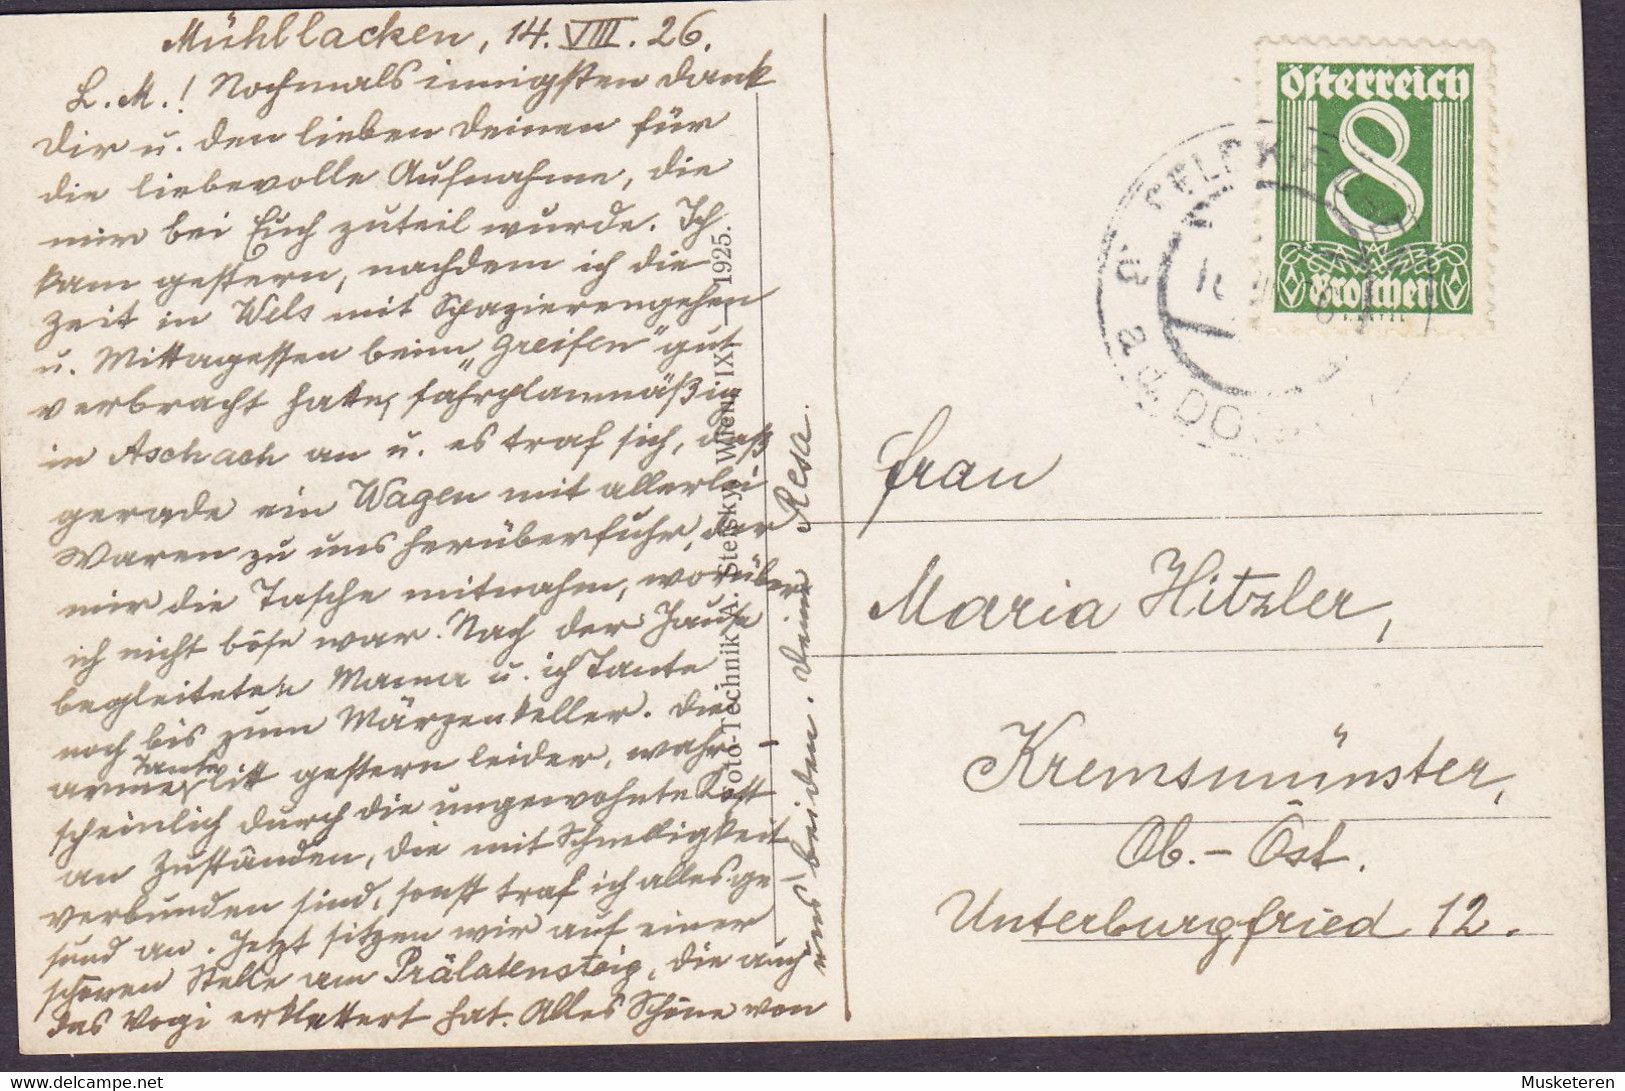 Mühllacken, 14. VIII. 26.
L. M.! Nochmals innigsten Dank
Dir u. den lieben Deinen für
die liebevolle Aufnahme, die
mir bei Euch zuteil wurde. Ich
kam gestern, nachdem ich die
Zeit in Wels mit Spazierengehen
u. Mittagessen beim „Greifen" gut
verbracht hatte, fahrplanmäßig
in Aschach an u. es traf sich, daß
gerade ein Wagen mit allerlei
Waren zu uns herüberfuhr, der
mir die Tasche mitnahm, worüber
ich nicht böse war. Nach der Jause
begleiteten Mama u. ich Tante
noch bis zum Märzenkeller. Die
arme Tante litt gestern leider, wahr-
scheinlich durch die ungewohnte Kost
an Zuständen, die mit Schnelligkeit
verbunden sind, sonst traf ich alles ge-
sund an. Jetzt sitzen wir auf einer
schönen Stelle am Prälatensteig, die auch
das Vogi erklettert hat. Alles Schöne von
uns beiden. Deine Resa.
Foto-Technik A. Stefsky, Wien, IX. — 1925.
Österreich
8
Groschen
FELDKIR
a. d. DO
Frau
Maria Hitzler,
Kremsmünster,
Ob.-Öst.
Unterburgfried 12.
https://www.delcampe.net
Musketeren